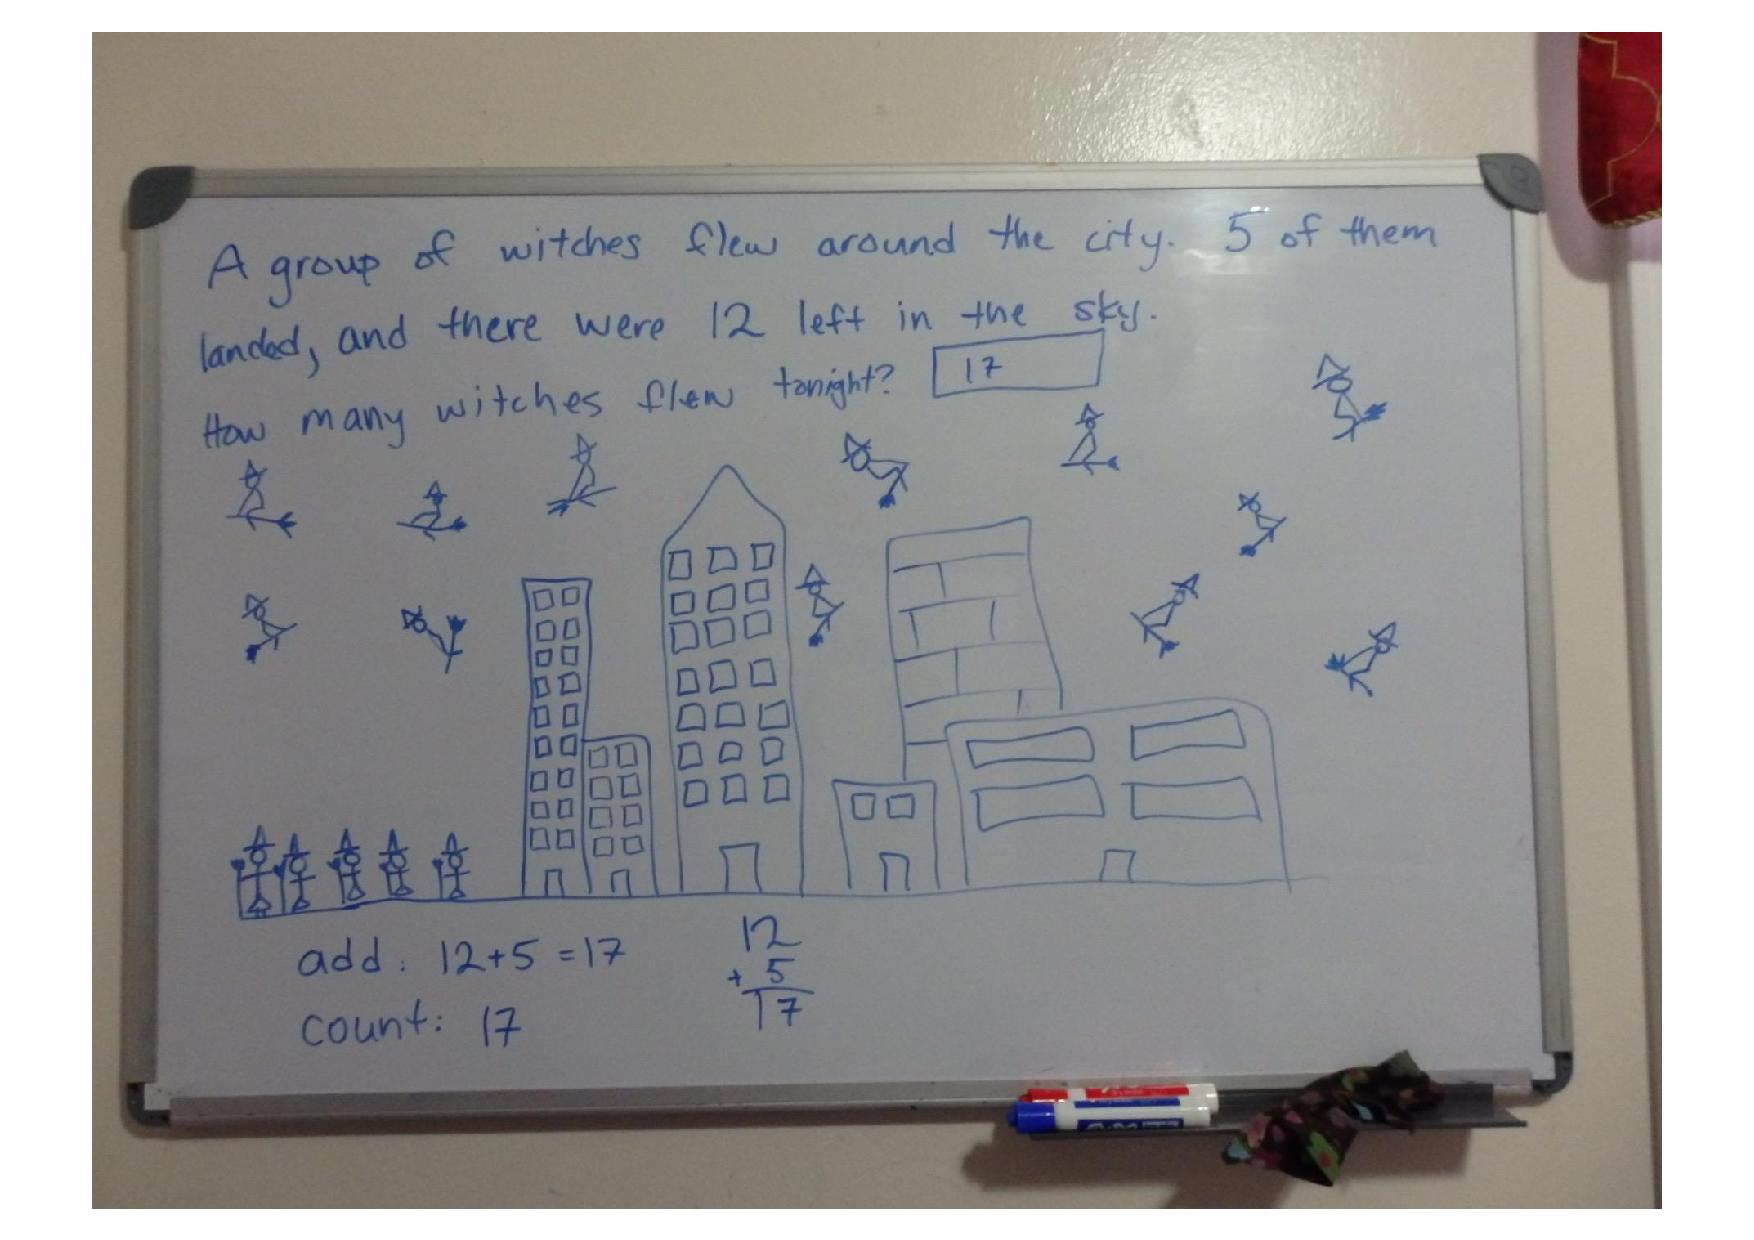 A group of witches flew around the city. 5 of them
landed, and there were 12 left in the sky.
How many witches flew tonight? 17
add: 12+5=17
count: 17
12
+ 5
17